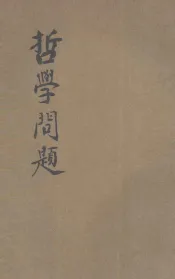 哲學問題